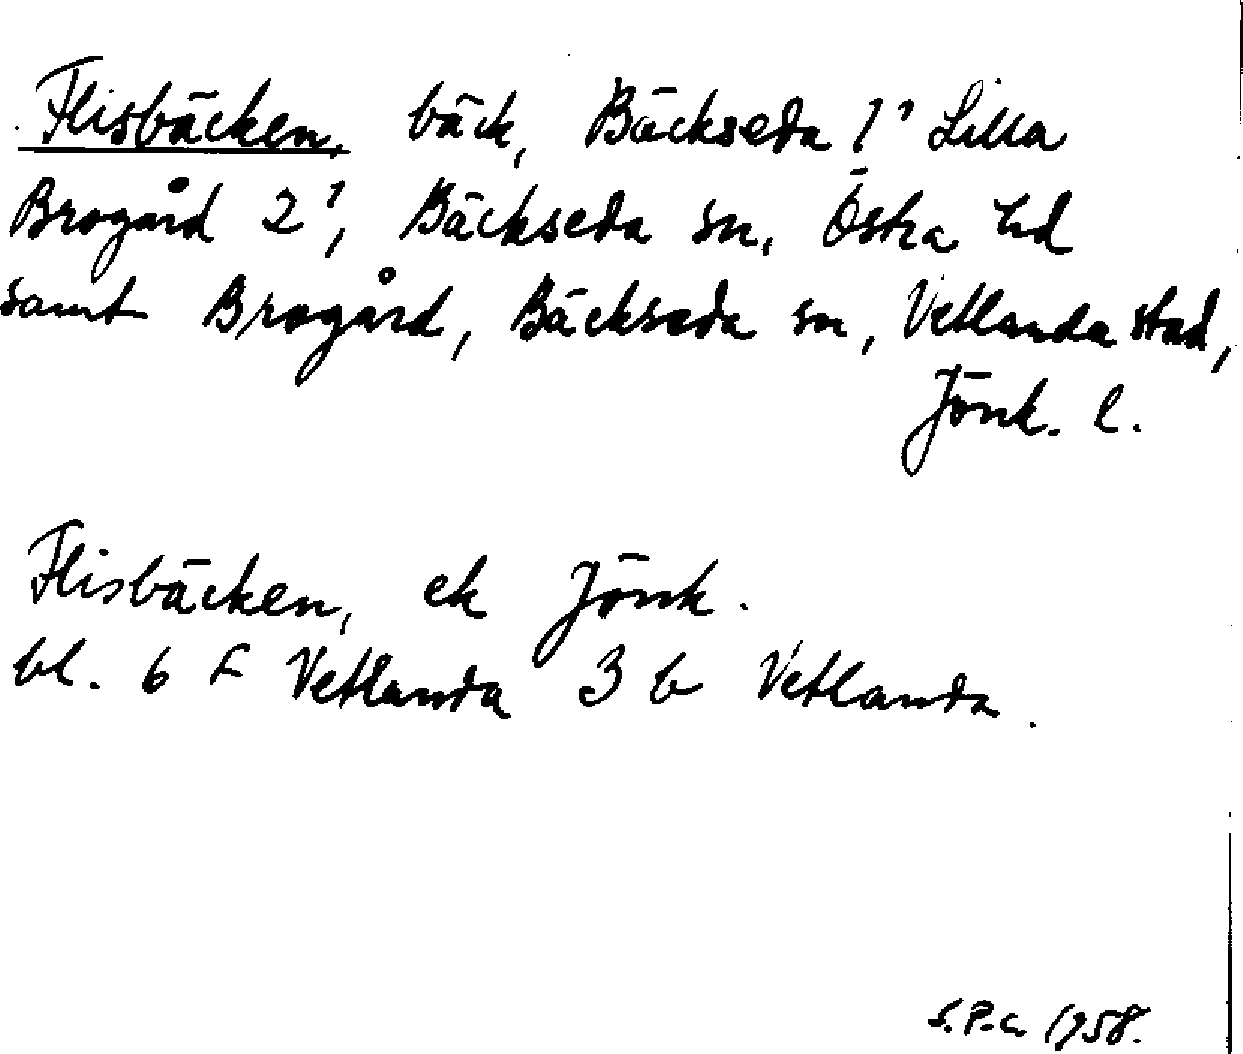 Flisbäcken, bäck, Bäckseda 1¹ Lilla
Brogård 2¹, Bäckseda sn, Östra hd
samt Brogård, Bäckseda sn, Vetlanda stad,
Jönk. l.
Flisbäcken, ek Jönk.
bl. 6 F Vetlanda 3 b Vetlanda.
1958.